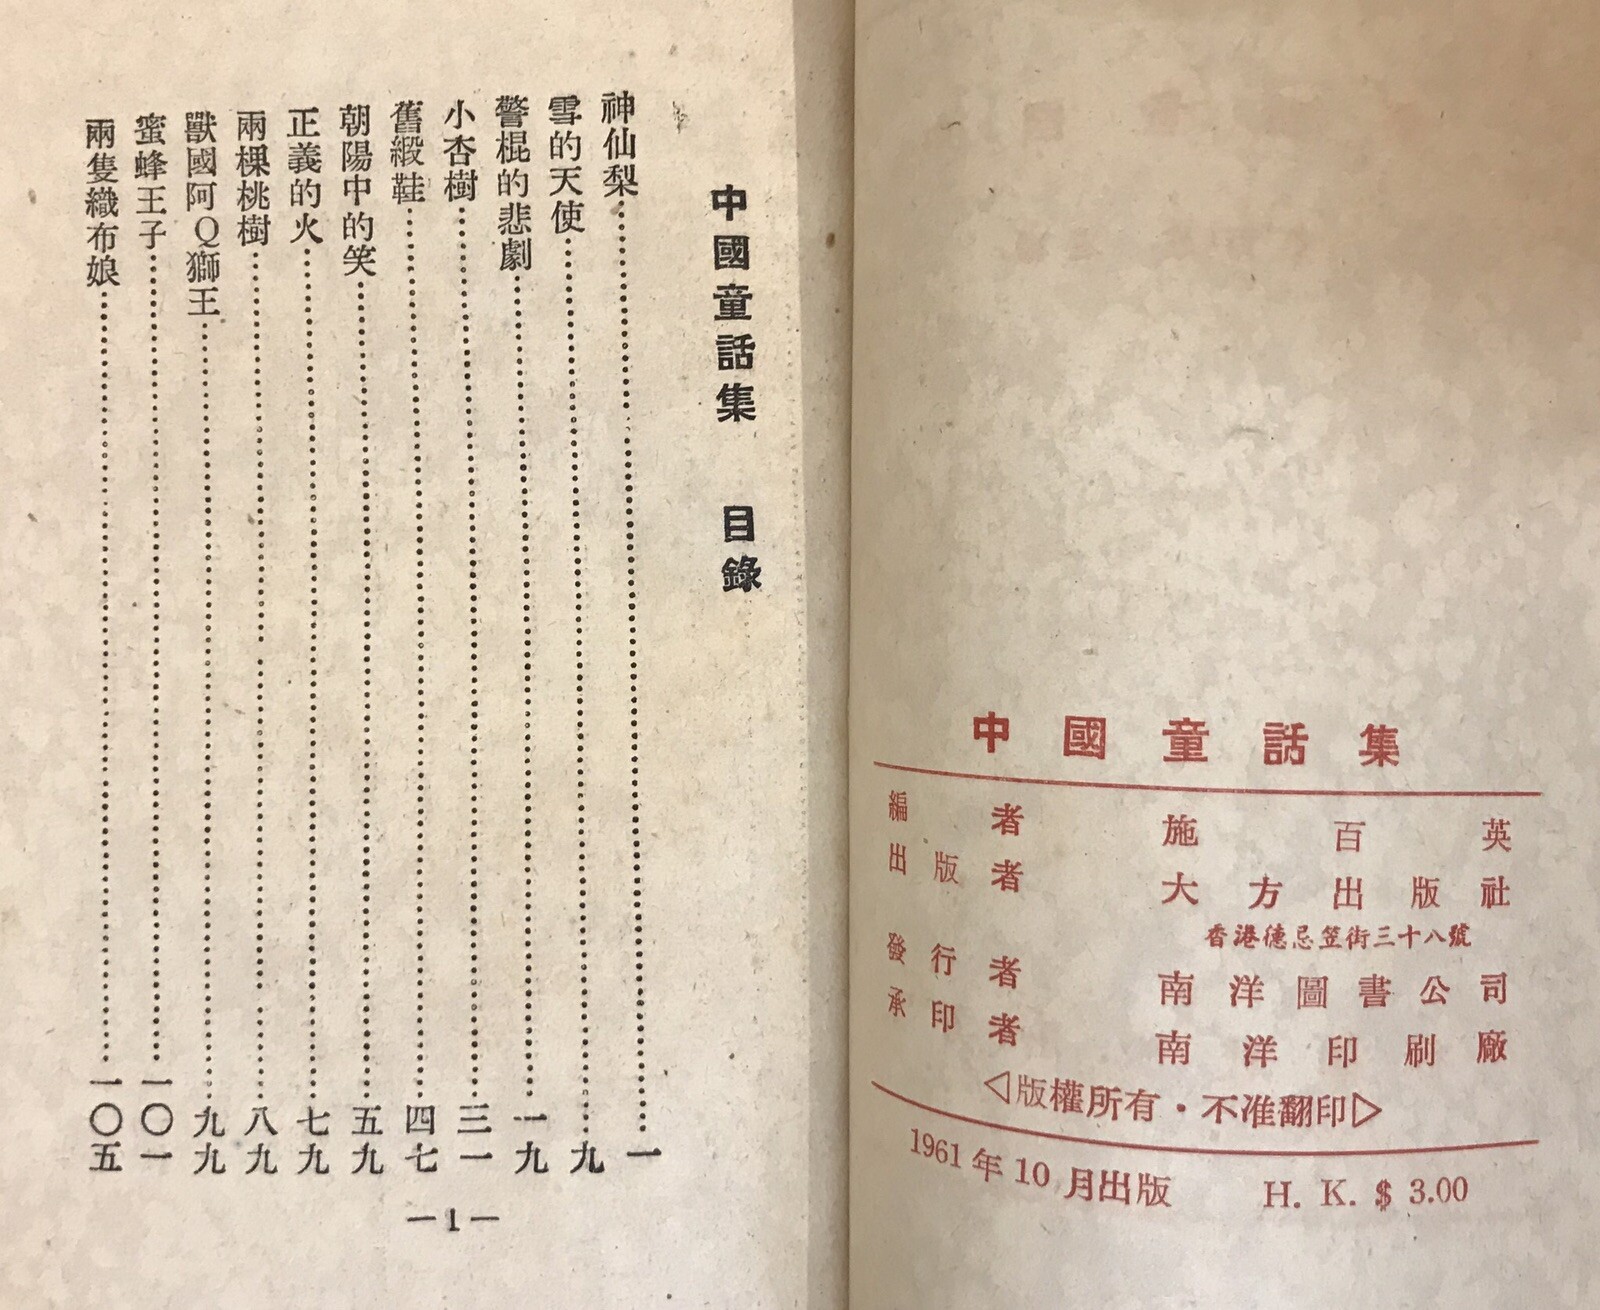 中國童話集
編者 施百英
出版者 大方出版社
香港德忌笠街三十八號
發行者 南洋圖書公司
承印者 南洋印刷廠
◁版權所有·不准翻印▷
1961年10月出版 H. K. $ 3.00
中國童話集 目錄
神仙梨……一
雪的天使……九
警棍的悲劇……一九
小杏樹……三一
舊緞鞋……四七
朝陽中的笑……五九
正義的火……七九
兩棵桃樹……八九
獸國阿Q獅王……九九
蜜蜂王子……一〇一
兩隻織布娘……一〇五
—1—